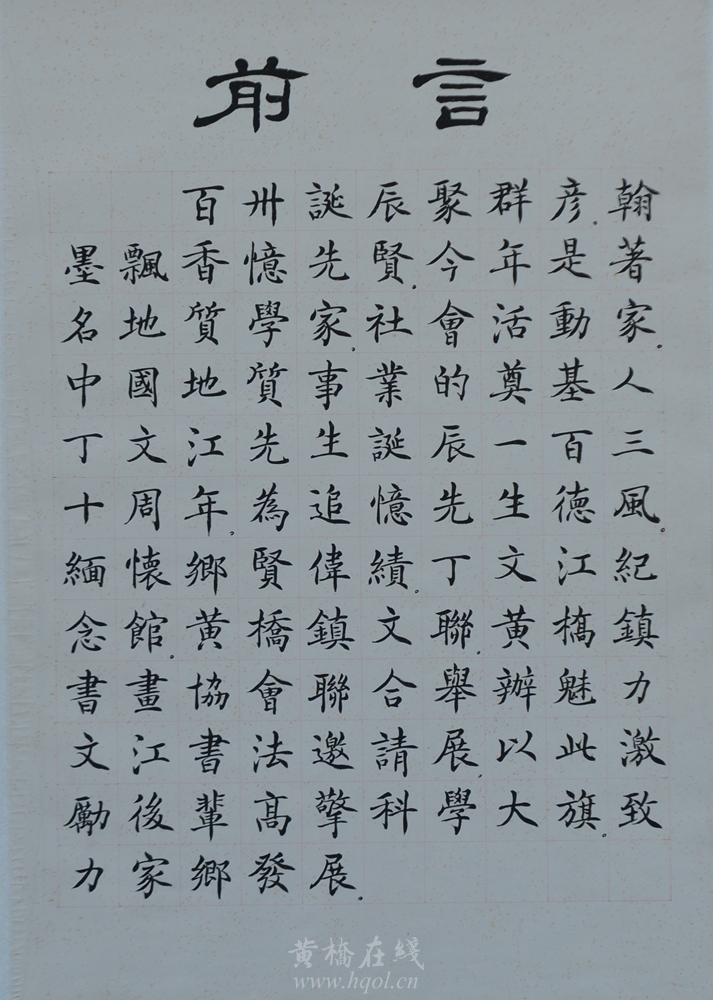 前言
百卅誕辰聚群彦.翰
墨飄香憶先賢.今年是著
名地質學家.社會活動家.
中國地質事業的奠基人
丁文江先生誕辰一百三
十周年.為追憶先生德風.
緬懷鄉賢偉績.丁文江紀
念館.黄橋鎮文聯.黄槗鎮
書畫協會聯合舉辦魅力
文江書法邀請展.以此激
勵後輩髙擎科學大旗.致
力家鄉發展.
黄橋在綫
www.hqol.cn